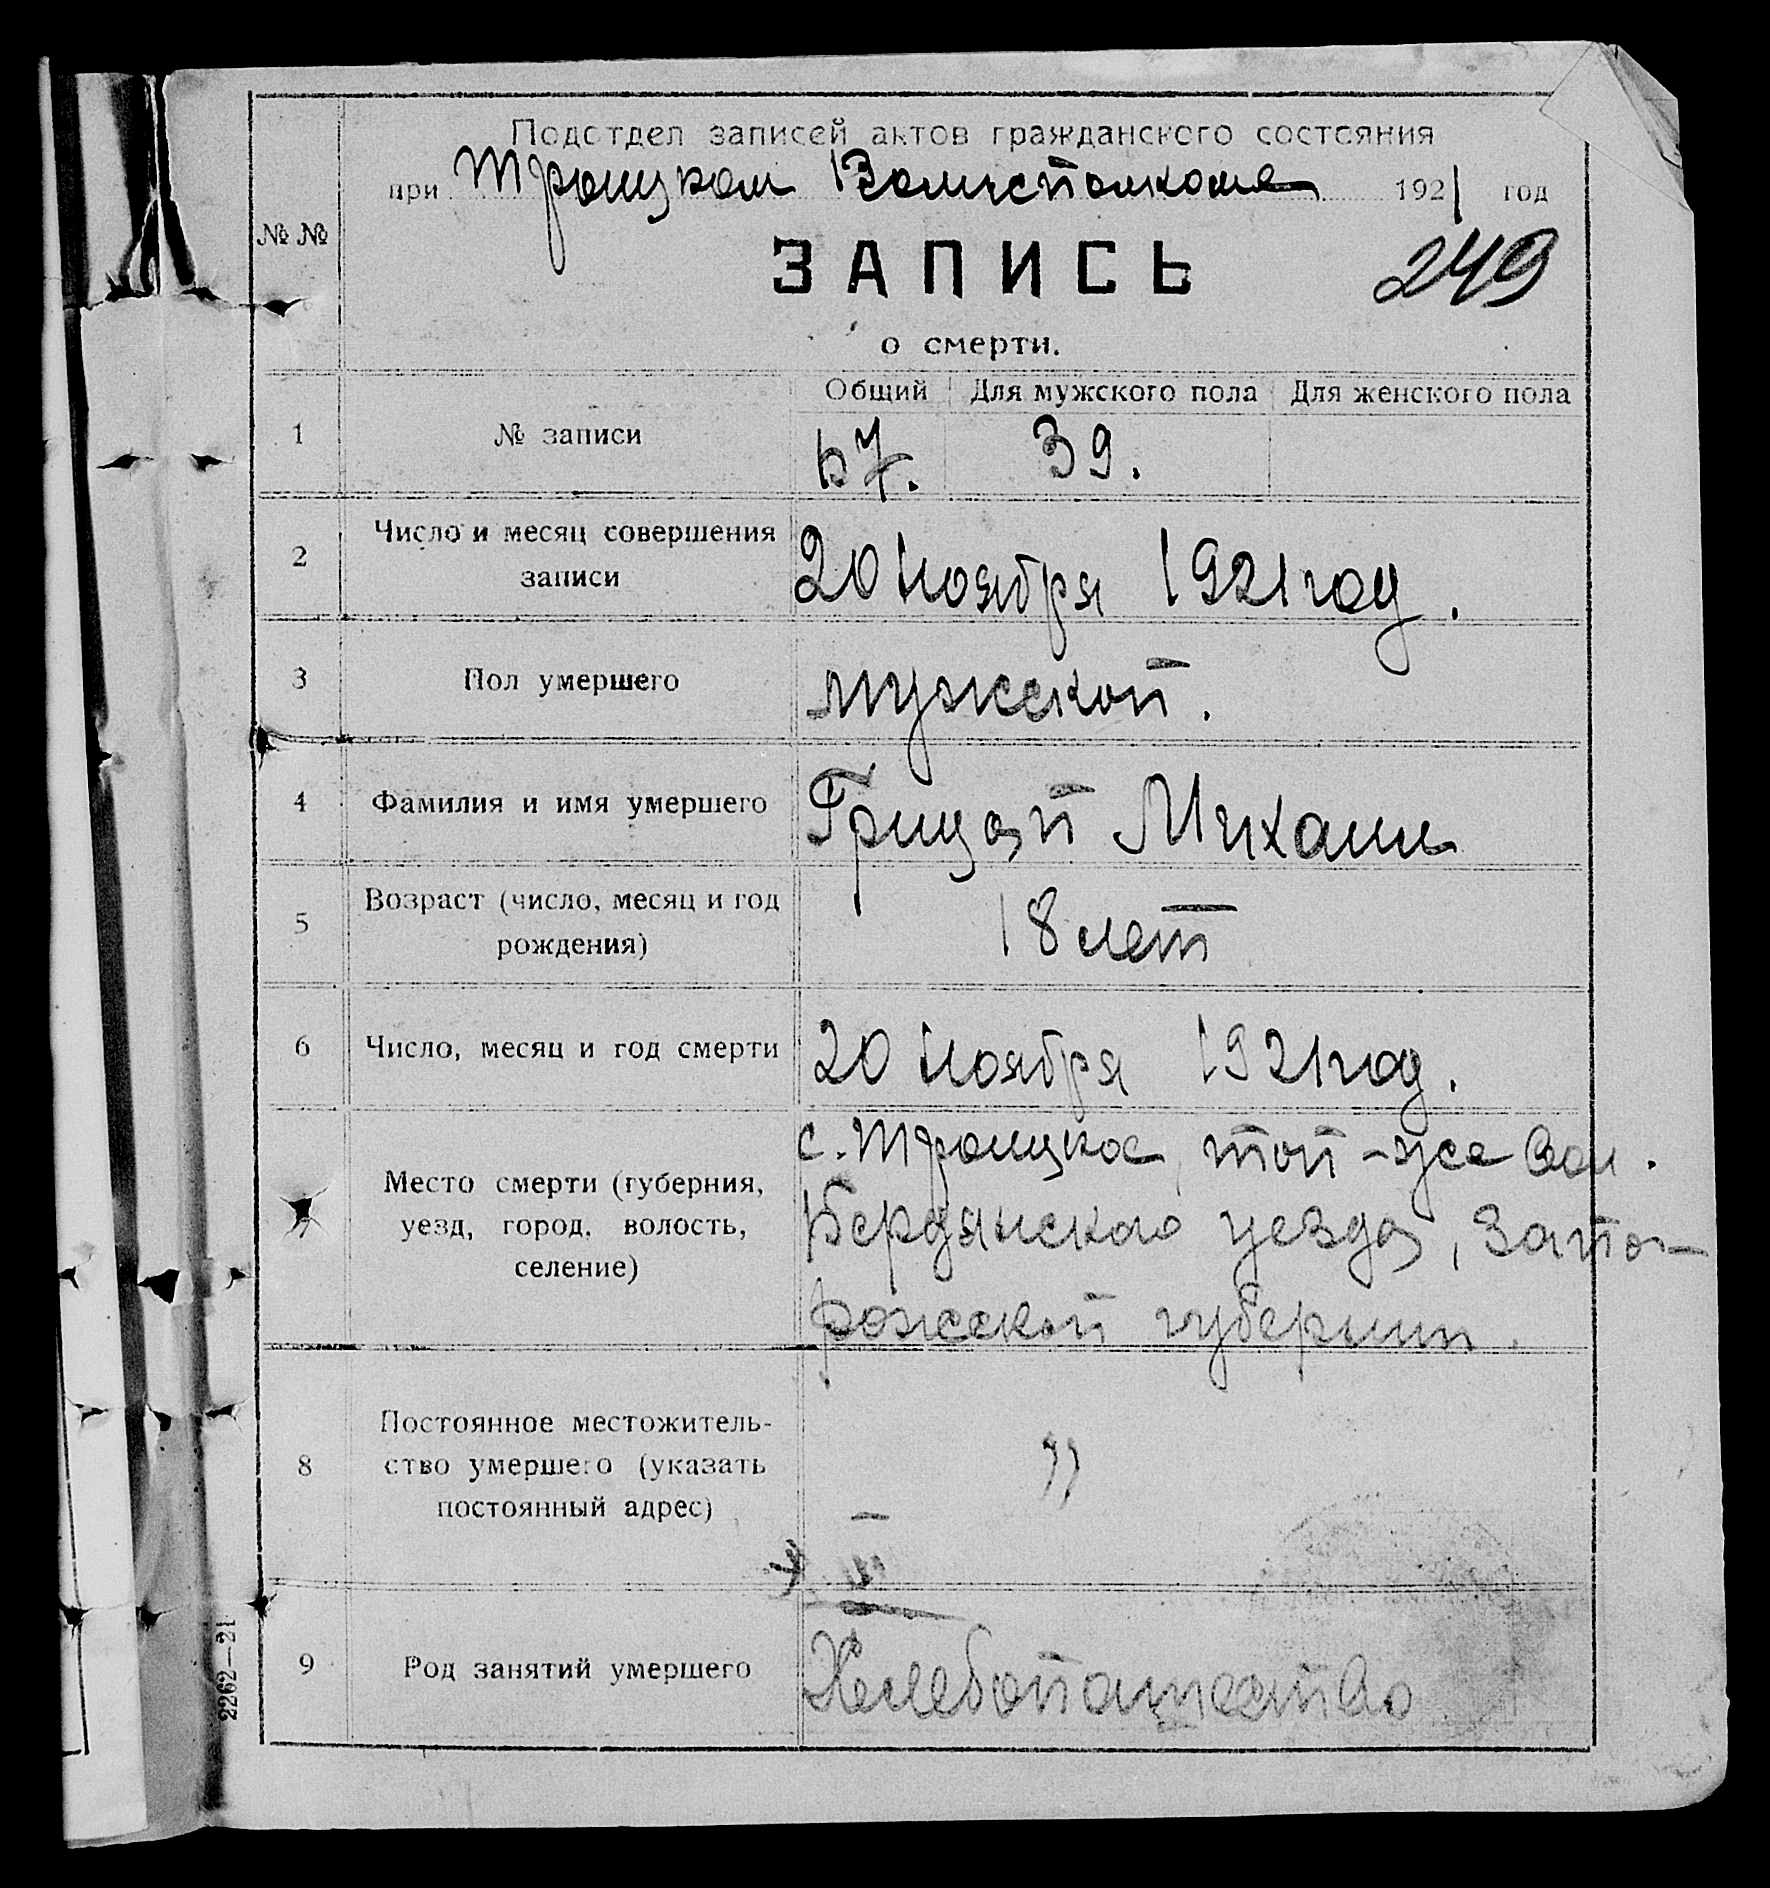 Подотдел записей актов гражданского состояния
при Троицком Волисполкоме 1921 год
№ №
ЗАПИСЬ
249
о смерти.
Общий Для мужского пола Для женского пола
1 № записи 67. 39.
2 Число и месяц совершения
записи
20 Ноября 1921 год.
3 Пол умершего мужской.
4 Фамилия и имя умершего Грицай Михаил
5 Возраст (число, месяц и год
рождения)
18 лет
6 Число, месяц и год смерти 20 Ноября 1921 год.
Место смерти (губерния,
уезд, город, волость,
селение)
с. Троицкое, той-же вол.
Бердянского уезда, Запо-
рожской губернии.
8 Постоянное местожитель-
ство умершего (указать
постоянный адрес)
"
9 Род занятий умершего Хлебопашество
2262—21